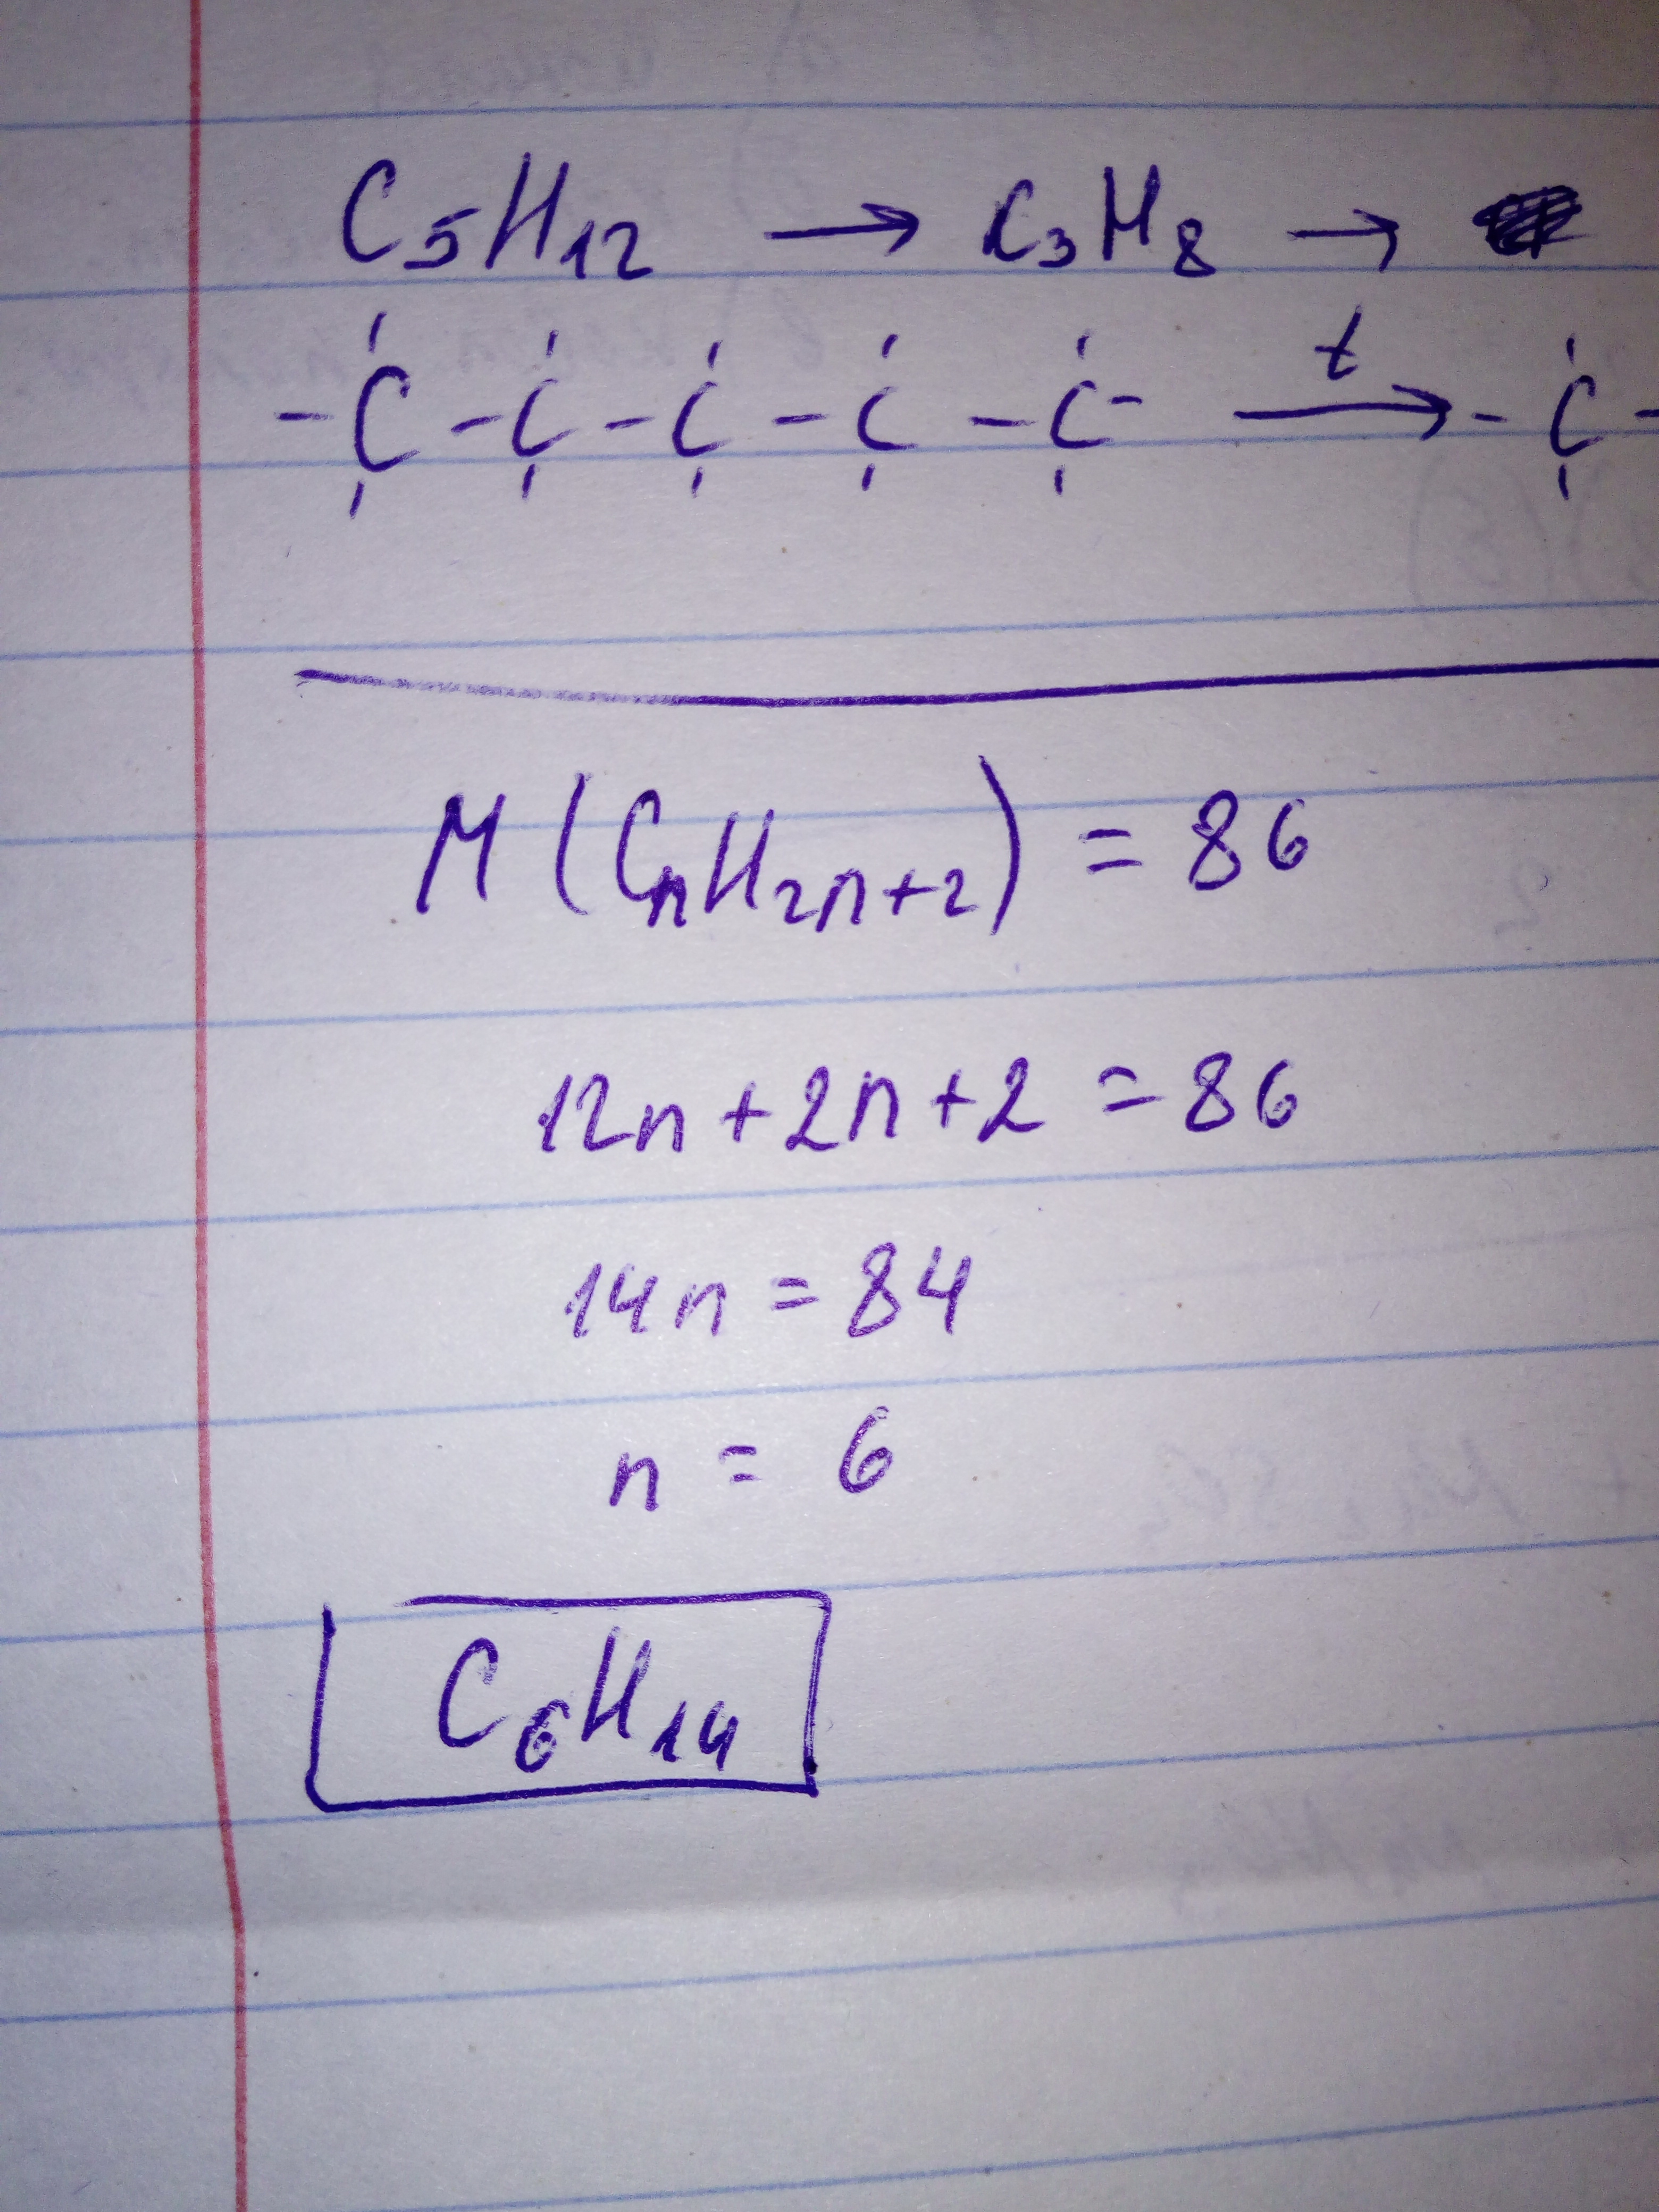 C₅H₁₂ → C₃H₈ →
-C-C-C-C-C- t→ -C-
M(CₙH₂ₙ₊₂) = 86
12n+2n+2 = 86
14n = 84
n = 6
C₆H₁₄